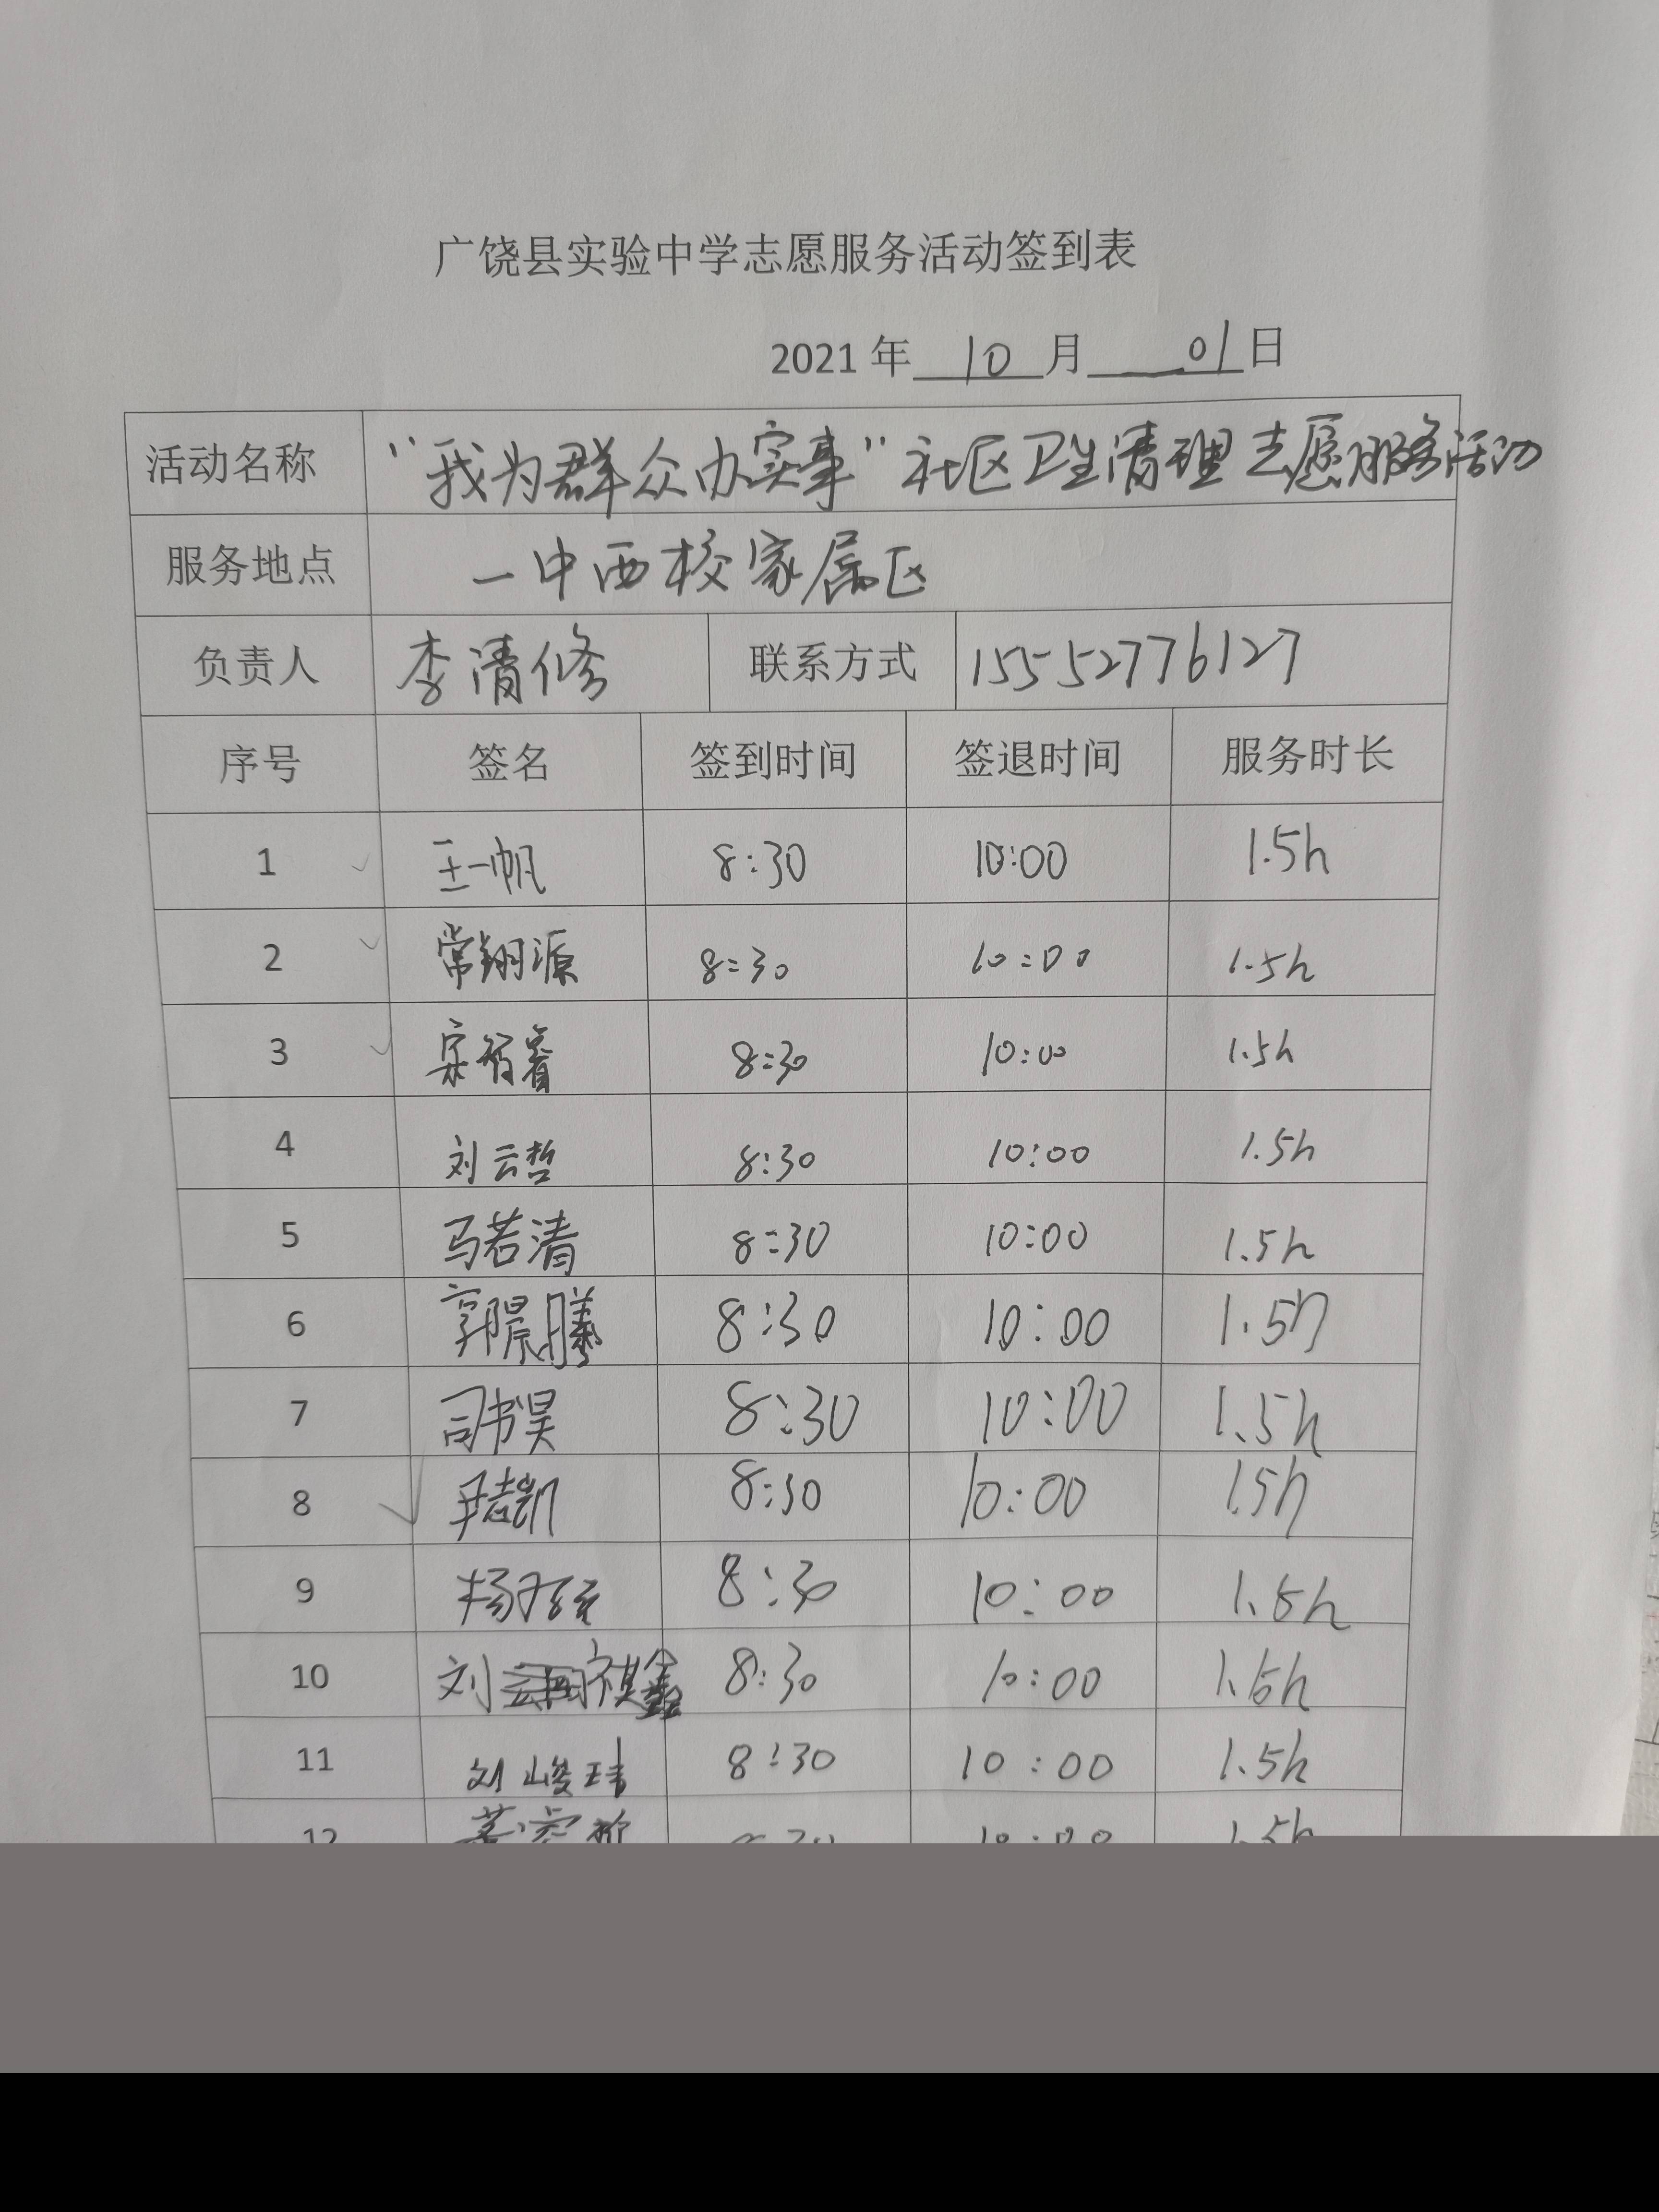 广饶县实验中学志愿服务活动签到表
2021 年 10 月 01 日
活动名称 “我为群众办实事”社区卫生清理志愿服务活动
服务地点 一中西校家属区
负责人 李清修 联系方式 15552776127
序号 签名 签到时间 签退时间 服务时长
1 王一帆 8:30 10:00 1.5h
2 常翔源 8:30 10:00 1.5h
3 8:30 10:00 1.5h
4 刘云哲 8:30 10:00 1.5h
5 马若清 8:30 10:00 1.5h
6 郭晨曦 8:30 10:00 1.5h
7 司书昊 8:30 10:00 1.5h
8 尹志凯 8:30 10:00 1.5h
9 8:30 10:00 1.5h
10 刘祺鑫 8:30 10:00 1.5h
11 刘峻玮 8:30 10:00 1.5h
12 1.5h